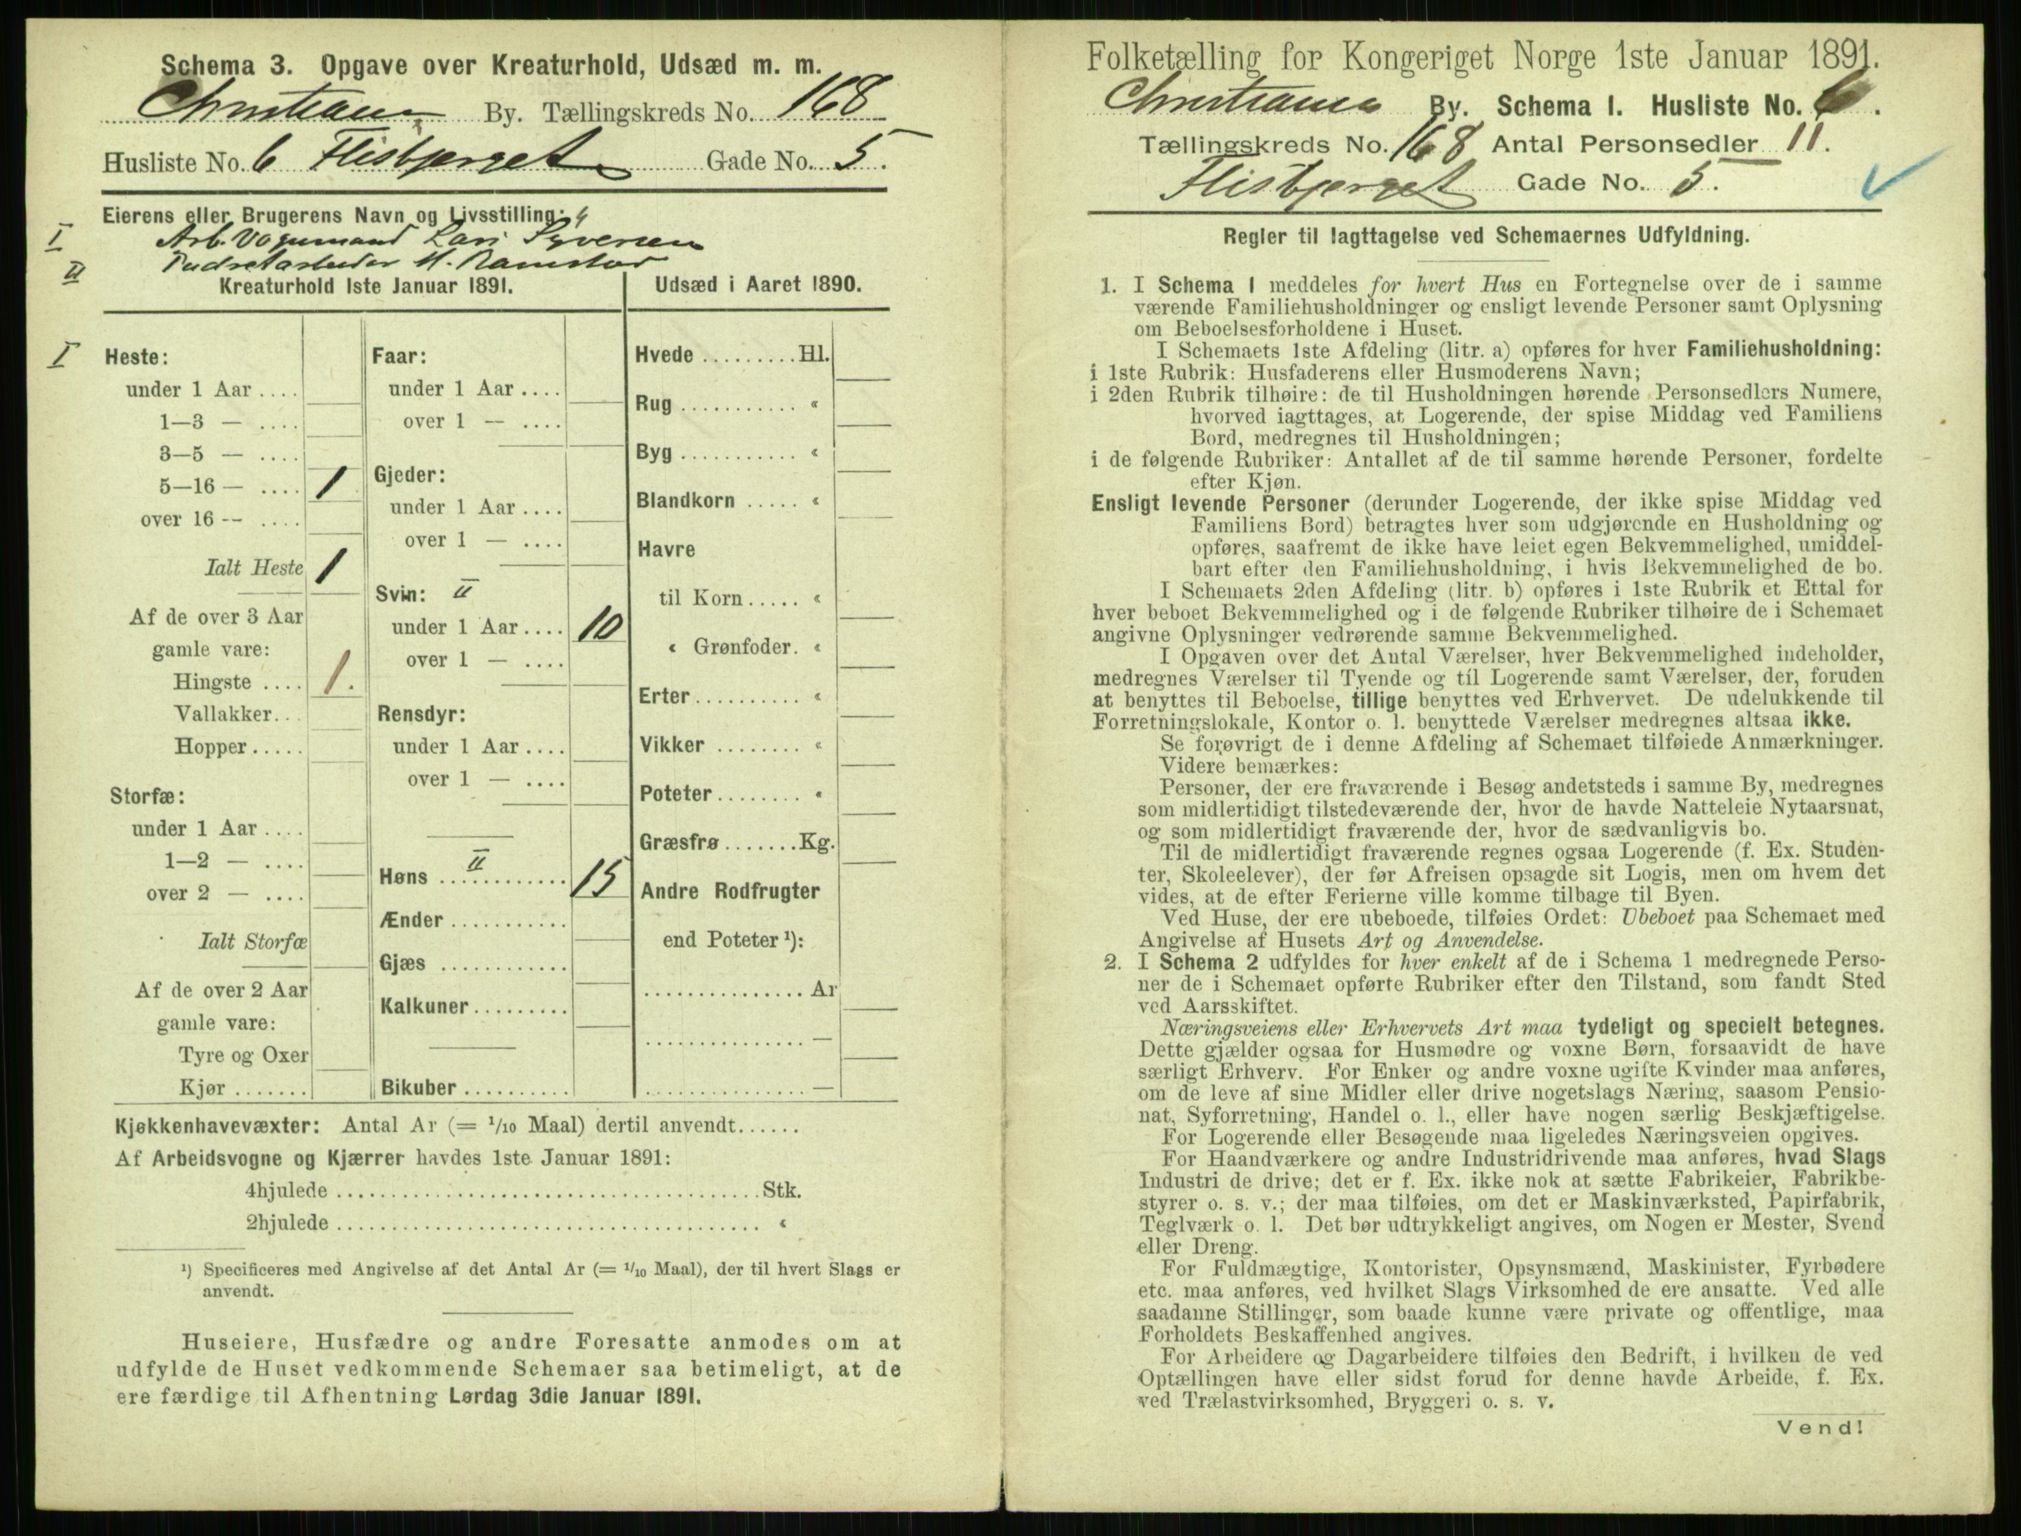 Schema 3. Opgave over Kreaturhold, Udsæd m. m.
Christiania By. Tællingskreds No. 168
Husliste No. 6 Flisbjerget Gade No. 5.
Eierens eller Brugerens Navn og Livsstilling:
I Arb. Vognmand Lars Syversen
II H. Ramstad
Kreaturhold 1ste Januar 1891.
I Heste:
under 1 Aar ....
1—3 — ....
3—5 — ....
5—16 — .... 1
over 16 -- ....
Ialt Heste 1
Af de over 3 Aar
gamle vare:
Hingste .... 1.
Vallakker...
Hopper.....
Storfæ:
under 1 Aar ....
1—2 — ....
over 2 — ....
Ialt Storfæ
Af de over 2 Aar
gamle vare:
Tyre og Oxer
Kjør .......
Faar:
under 1 Aar ....
over 1 — ....
Gjeder:
under 1 Aar ....
over 1 — ....
Svin: II
under 1 Aar .... 10
over 1 — ....
Rensdyr:
under 1 Aar ....
over 1 — ....
II
Høns ............ 15
Ænder ...........
Gjæs ............
Kalkuner .........
Bikuber ..........
Udsæd i Aaret 1890.
Hvede .........Hl.
Rug ........... «
Byg ........... «
Blandkorn ..... «
Havre
til Korn..... «
« Grønfoder. «
Erter .......... «
Vikker ........ «
Poteter........ «
Græsfrø .......Kg.
Andre Rodfrugter
end Poteter ¹):
............... Ar
............... —
............... —
Kjøkkenhavevæxter: Antal Ar (= 1/10 Maal) dertil anvendt......
Af Arbeidsvogne og Kjærrer havdes 1ste Januar 1891:
4hjulede ........................................Stk.
2hjulede ........................................ «
¹) Specificeres med Angivelse af det Antal Ar (= 1/10 Maal), der til hvert Slags er
anvendt.
Huseiere, Husfædre og andre Foresatte anmodes om at
udfylde de Huset vedkommende Schemaer saa betimeligt, at de
ere færdige til Afhentning Lørdag 3die Januar 1891.
Folketælling for Kongeriget Norge 1ste Januar 1891.
Christiania By. Schema 1. Husliste No. 6.
Tællingskreds No. 168 Antal Personsedler 11.
Flisbjerget Gade No. 5.
Regler til Iagttagelse ved Schemaernes Udfyldning.
1. I Schema 1 meddeles for hvert Hus en Fortegnelse over de i samme
værende Familiehusholdninger og ensligt levende Personer samt Oplysning
om Beboelsesforholdene i Huset.
I Schemaets 1ste Afdeling (litr. a) opføres for hver Familiehusholdning:
i 1ste Rubrik: Husfaderens eller Husmoderens Navn;
i 2den Rubrik tilhøire: de til Husholdningen hørende Personsedlers Numere,
hvorved iagttages, at Logerende, der spise Middag ved Familiens
Bord, medregnes til Husholdningen;
i de følgende Rubriker: Antallet af de til samme hørende Personer, fordelte
efter Kjøn.
Ensligt levende Personer (derunder Logerende, der ikke spise Middag ved
Familiens Bord) betragtes hver som udgjørende en Husholdning og
opføres, saafremt de ikke have leiet egen Bekvemmelighed, umiddel-
bart efter den Familiehusholdning, i hvis Bekvemmelighed de bo.
I Schemaets 2den Afdeling (litr. b) opføres i 1ste Rubrik et Ettal for
hver beboet Bekvemmelighed og i de følgende Rubriker tilhøire de i Schemaet
angivne Oplysninger vedrørende samme Bekvemmelighed.
I Opgaven over det Antal Værelser, hver Bekvemmelighed indeholder,
medregnes Værelser til Tyende og til Logerende samt Værelser, der, foruden
at benyttes til Beboelse, tillige benyttes ved Erhvervet. De udelukkende til
Forretningslokale, Kontor o. l. benyttede Værelser medregnes altsaa ikke.
Se forøvrigt de i denne Afdeling af Schemaet tilføiede Anmærkninger.
Videre bemærkes:
Personer, der ere fraværende i Besøg andetsteds i samme By, medregnes
som midlertidigt tilstedeværende der, hvor de havde Natteleie Nytaarsnat,
og som midlertidigt fraværende der, hvor de sædvanligvis bo.
Til de midlertidigt fraværende regnes ogsaa Logerende (f. Ex. Studen-
ter, Skoleelever), der før Afreisen opsagde sit Logis, men om hvem det
vides, at de efter Ferierne ville komme tilbage til Byen.
Ved Huse, der ere ubeboede, tilføies Ordet: Ubeboet paa Schemaet med
Angivelse af Husets Art og Anvendelse.
2. I Schema 2 udfyldes for hver enkelt af de i Schema 1 medregnede Perso-
ner de i Schemaet opførte Rubriker efter den Tilstand, som fandt Sted
ved Aarsskiftet.
Næringsveiens eller Erhvervets Art maa tydeligt og specielt betegnes.
Dette gjælder ogsaa for Husmødre og voxne Børn, forsaavidt de have
særligt Erhverv. For Enker og andre voxne ugifte Kvinder maa anføres,
om de leve af sine Midler eller drive nogetslags Næring, saasom Pensio-
nat, Syforretning, Handel o. l., eller have nogen særlig Beskjæftigelse.
For Logerende eller Besøgende maa ligeledes Næringsveien opgives.
For Haandværkere og andre Industridrivende maa anføres, hvad Slags
Industri de drive; det er f. Ex. ikke nok at sætte Fabrikeier, Fabrikbe-
styrer o. s. v.; der maa tilføies, om det er Maskinværksted, Papirfabrik,
Teglværk o. l. Det bør udtrykkeligt angives, om Nogen er Mester, Svend
eller Dreng.
For Fuldmægtige, Kontorister, Opsynsmænd, Maskinister, Fyrbødere
etc. maa anføres, ved hvilket Slags Virksomhed de ere ansatte. Ved alle
saadanne Stillinger, som baade kunne være private og offentlige, maa
Forholdets Beskaffenhed angives.
For Arbeidere og Dagarbeidere tilføies den Bedrift, i hvilken de ved
Optællingen have eller sidst forud for denne havde Arbeide, f. Ex.
ved Trælastvirksomhed, Bryggeri o. s. v.
Vend!